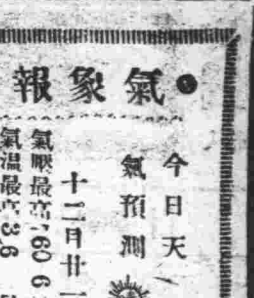 ●氣象報
今日天
氣預測
十二月廿一
氣壓最高760 6
氣溫最高 3.6